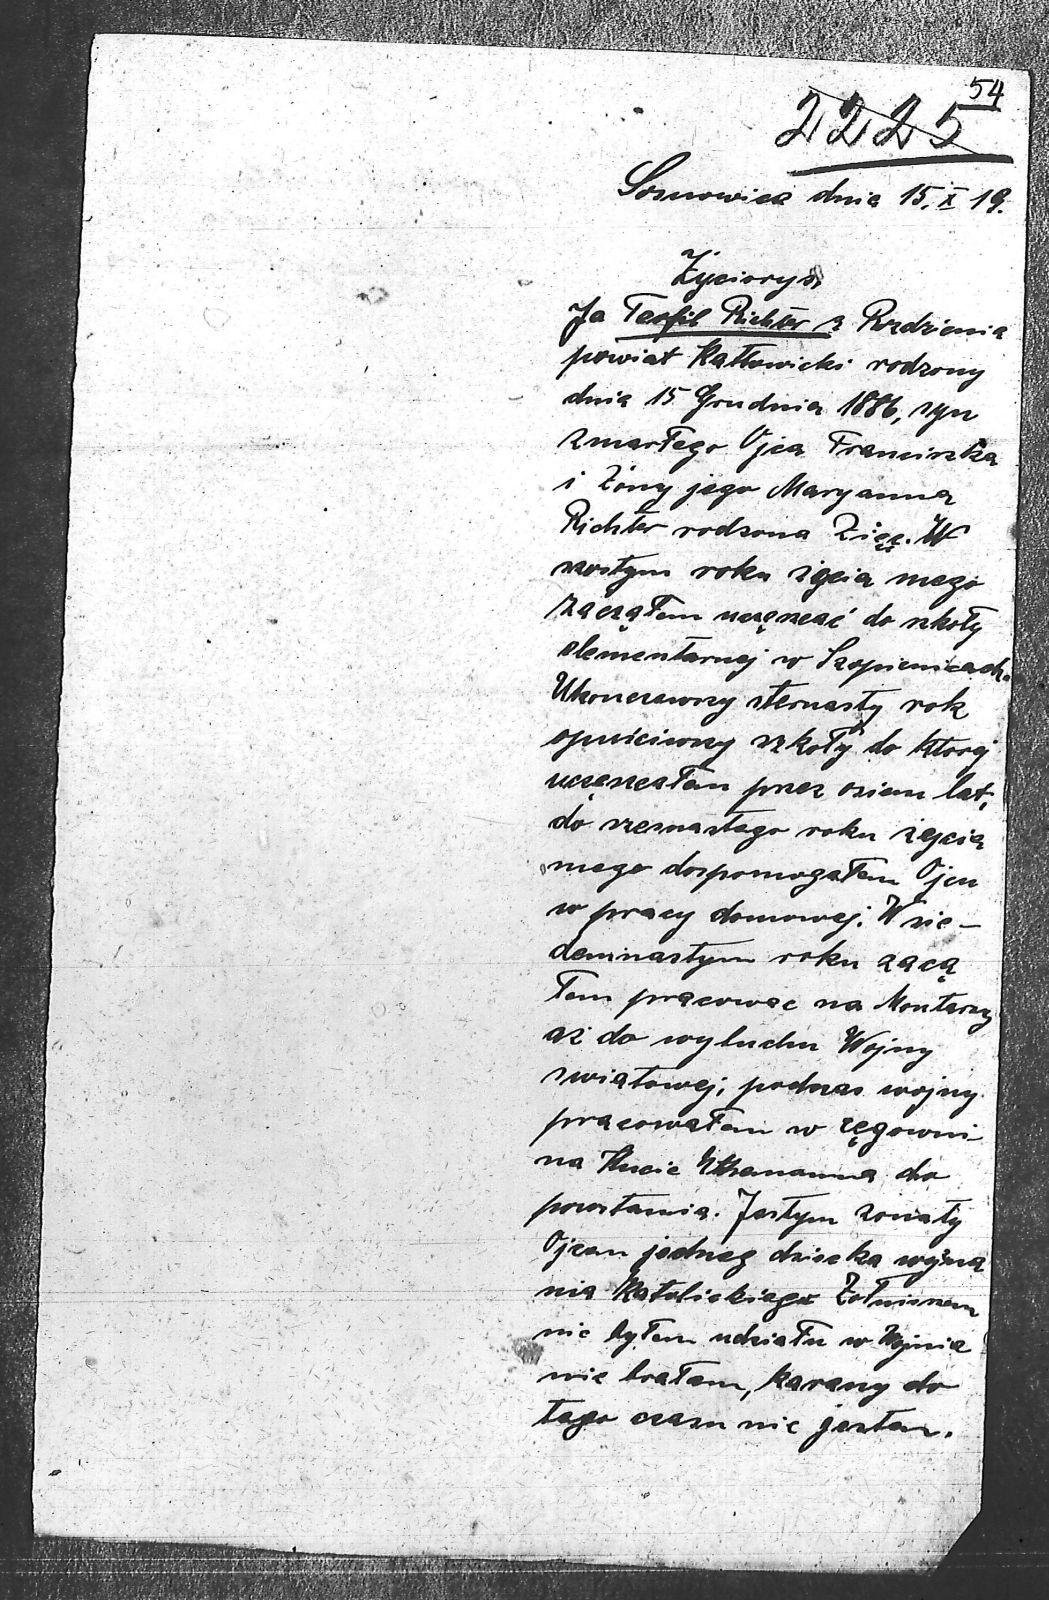 54
2225
Sosnowice dnia 15. X 19.
Życiorys
Ja Teofil Richter z Rozdzienia
powiat Kattowicki rodzony
dnia 15 Grudnia 1886, syn
zmarłego Ojca Franciszka
i żony jego Maryanna
Richter rodzona Zięz. W
szostym roku zycia mego
zacząłem uczęszać do szkoły
elementarnej w Szopienicach.
Ukonczewszy sternasty rok
opuściwszy szkoły do ktorej
uczęszczałem przez osiem lat,
do szesnastego roku zycia
mego dospomogałem Ojcu
w pracy domowej. W sie-
demnastym roku zacą
łem pracowac na Montarzy
aż do wybuchu Wojny
swiatowej, podczas wojny
pracowałem w cęgowni
na Hucie Uthemanna do
powstania. Jestym zonaty
Ojcem jedneg dziecka wyzna
nia Katolickiego Żołniezem
nie byłem udziału w Wojnie
nie brałem, karany do
tego czasu nie jestem.